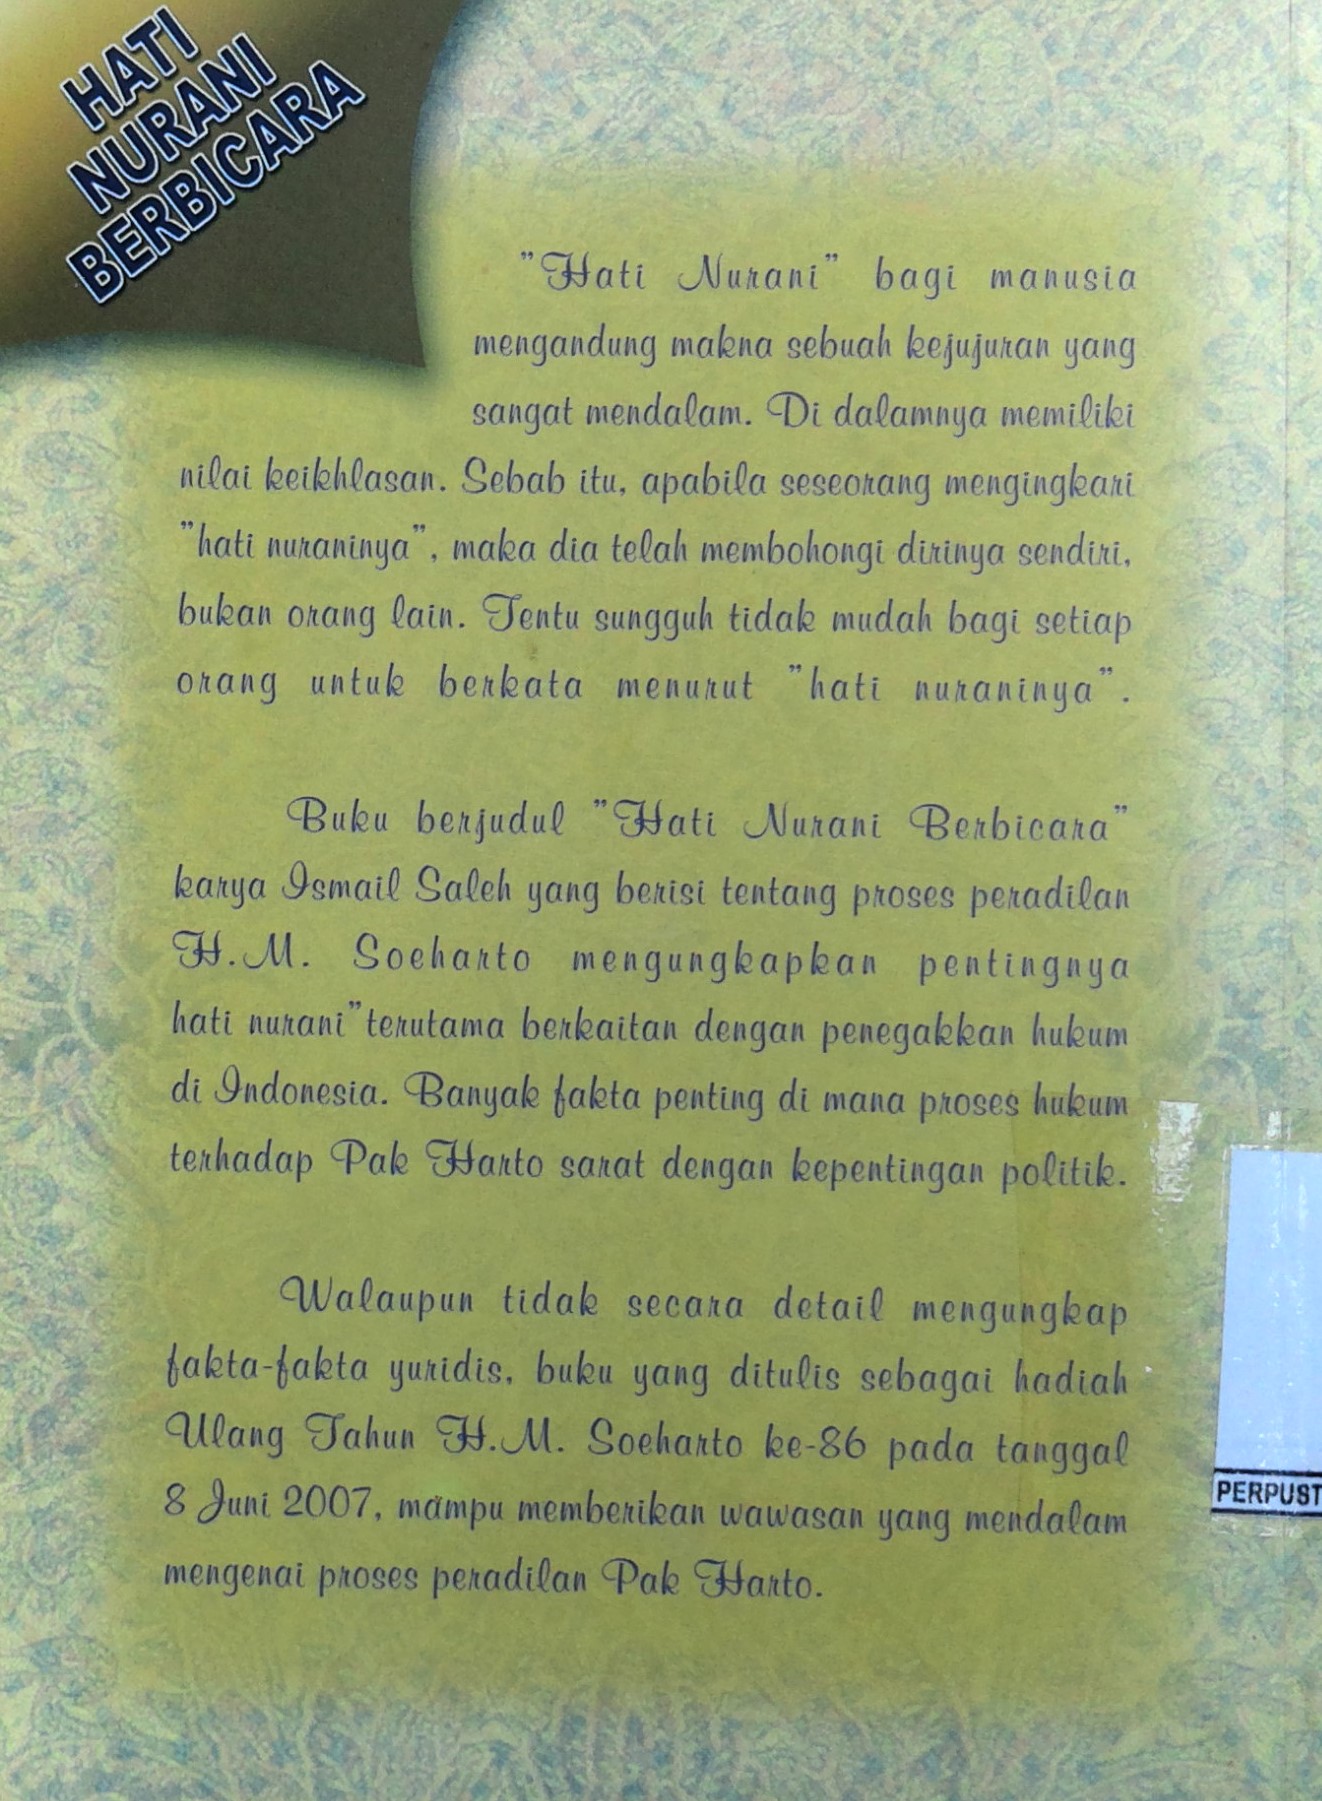 HATI
NURANI
BERBICARA
"Hati Nurani" bagi manusia
mengandung makna sebuah kejujuran yang
sangat mendalam. Di dalamnya memiliki
nilai keikhlasan. Sebab itu, apabila seseorang mengingkari
"hati nuraninya", maka dia telah membohongi dirinya sendiri,
bukan orang lain. Tentu sungguh tidak mudah bagi setiap
orang untuk berkata menurut "hati nuraninya".
Buku berjudul "Hati Nurani Berbicara"
karya Ismail Saleh yang berisi tentang proses peradilan
H.M. Soeharto mengungkapkan pentingnya
hati nurani"terutama berkaitan dengan penegakkan hukum
di Indonesia. Banyak fakta penting di mana proses hukum
terhadap Pak Harto sarat dengan kepentingan politik.
Walaupun tidak secara detail mengungkap
fakta-fakta yuridis, buku yang ditulis sebagai hadiah
Ulang Tahun H.M. Soeharto ke-86 pada tanggal
8 Juni 2007, mampu memberikan wawasan yang mendalam
mengenai proses peradilan Pak Harto.
PERPUST